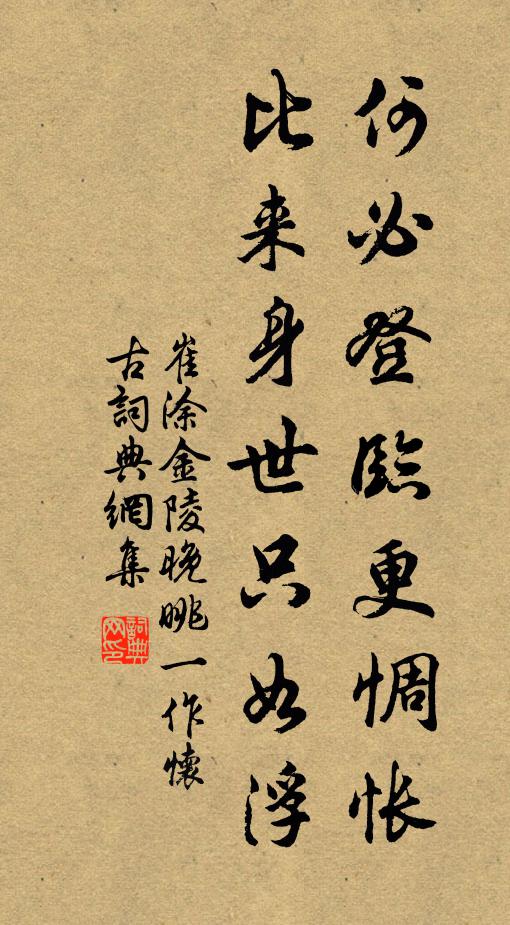 何必登臨更惆怅
比来身世只如浮
崔涂金陵晚眺一作懷
古詞典網集
詞典网印